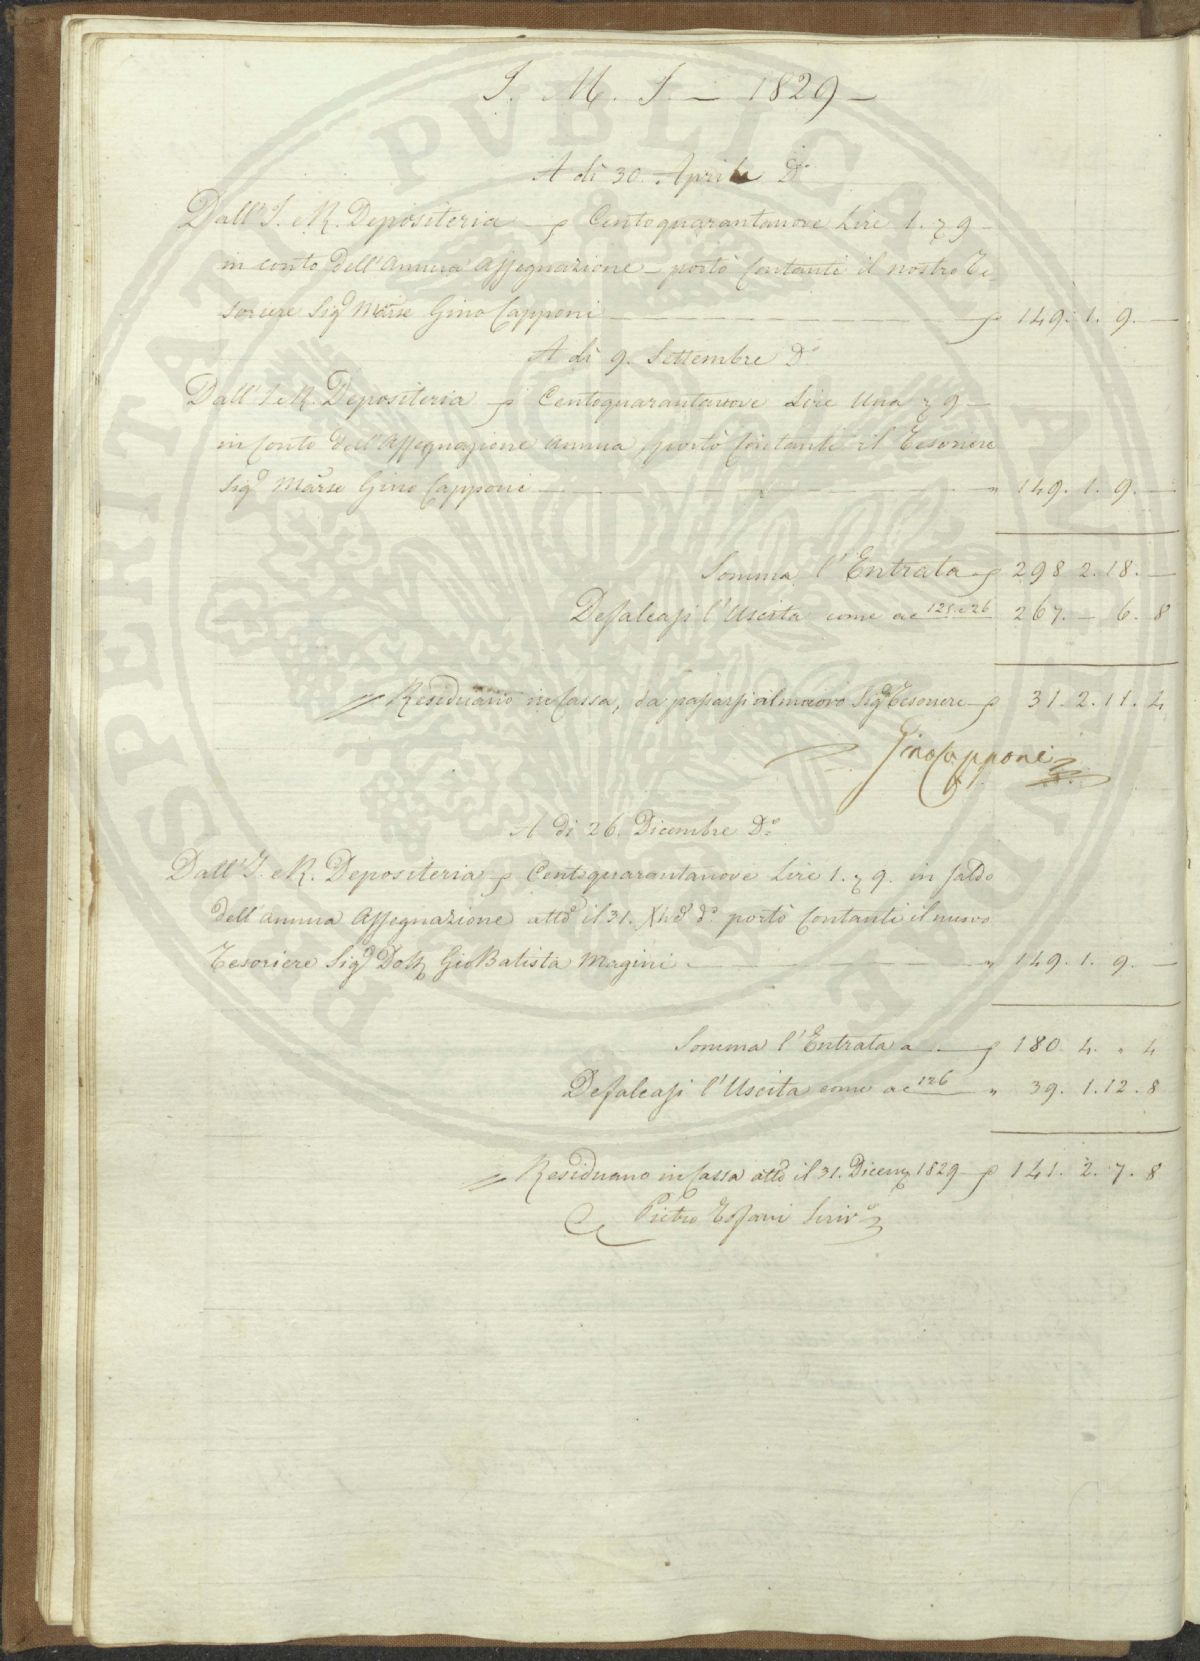 J. M. J. — 1829 —
A dì 30. Aprile Dº
Dall'I. e R. Depositeria — Centoquarantanove Lire 1. 9 —
in conto dell'Annua Assegnazione — portò Contanti il nostro Te-
soriere Sigʳ Marse Gino Capponi — 149. 1. 9. —
A dì 9. Settembre Dº
Dall'I. e R. Depositeria Centoquarantanove Lire Una 9 —
in Conto dell'Assegnazione Annua, portò Contanti il Tesoriere
Sigʳ Marse Gino Capponi — " 149. 1. 9. —
Somma l'Entrata 298 2. 18. —
Defalcasi l'Uscita come a c 125 e 26 267. — 6. 8
Residuano in Cassa, da passarsi al nuovo Sigʳ Tesoriere 31. 2. 11. 4
Gino Capponi
A dì 26. Dicembre Dº
Dall'I. e R. Depositeria Centoquarantanove Lire 1. 9. in saldo
dell'annua Assegnazione attº il 31. Xbrᵉ dº portò Contanti il nuovo
Tesoriere Sigʳ Dott Gio Batista Magini — " 149. 1. 9. —
Somma l'Entrata a — 180. 4. " 4
Defalcasi l'Uscita come a c 126 " 39. 1. 12. 8
Residuano in Cassa attº il 31. Dicem 1829 — 141. 2. 7. 8
Pietro Scrivº
PROSPERITATI PVBLICAE AVGENDAE